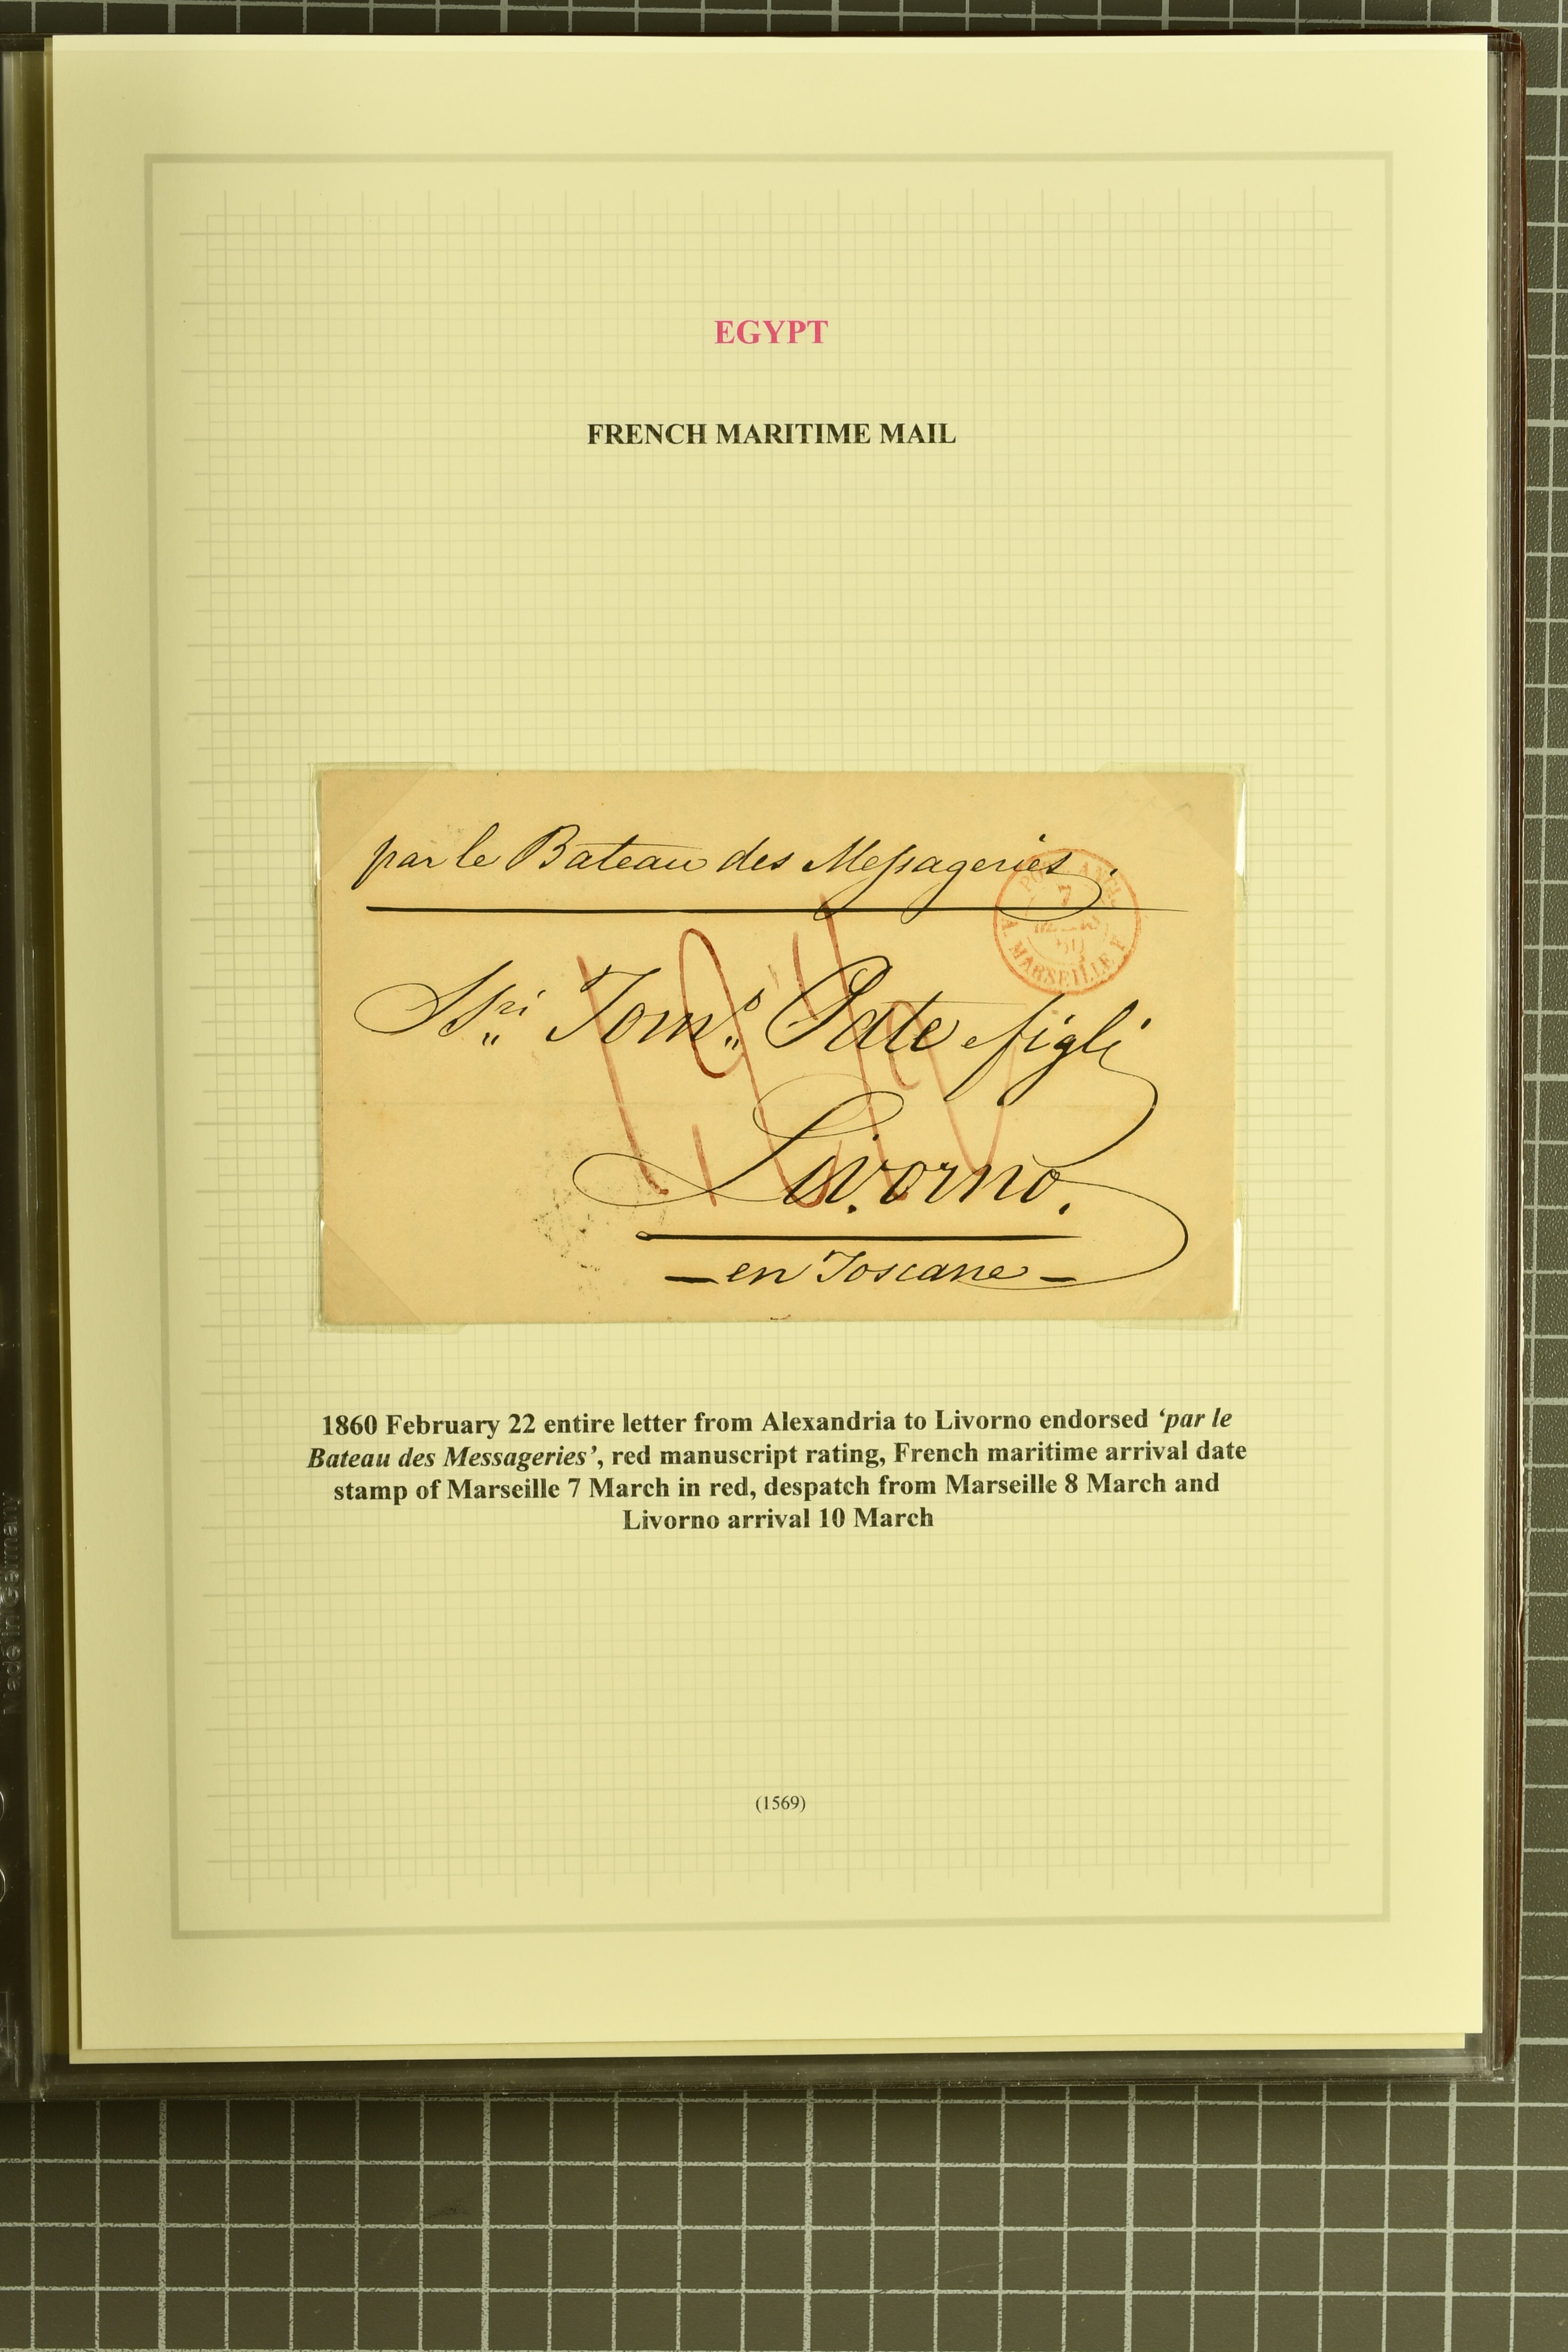 EGYPT
FRENCH MARITIME MAIL
par le Bateau des Messageries.
7
60
A. MARSEILLE
Spri Toms. Pate e figli
Livorno.
— en Toscane —
1860 February 22 entire letter from Alexandria to Livorno endorsed ‘par le
Bateau des Messageries’, red manuscript rating, French maritime arrival date
stamp of Marseille 7 March in red, despatch from Marseille 8 March and
Livorno arrival 10 March
(1569)
Made in Germany